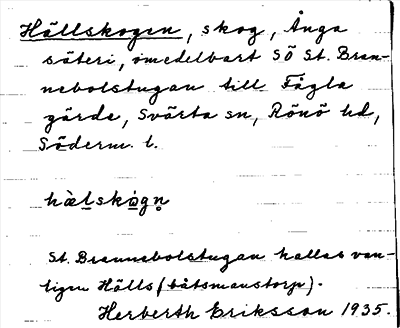 Hällskogen, skog, Ånga
säteri, omedelbart SÖ St. Bran-
nebolstugan till Fågla
gärde, Svärta sn, Rönö hd,
Söderm. l.
hälskògn̥
St. Brannebolstugan kallas van-
ligen Hälls (båtsmanstorp).
Herberth Eriksson 1935.